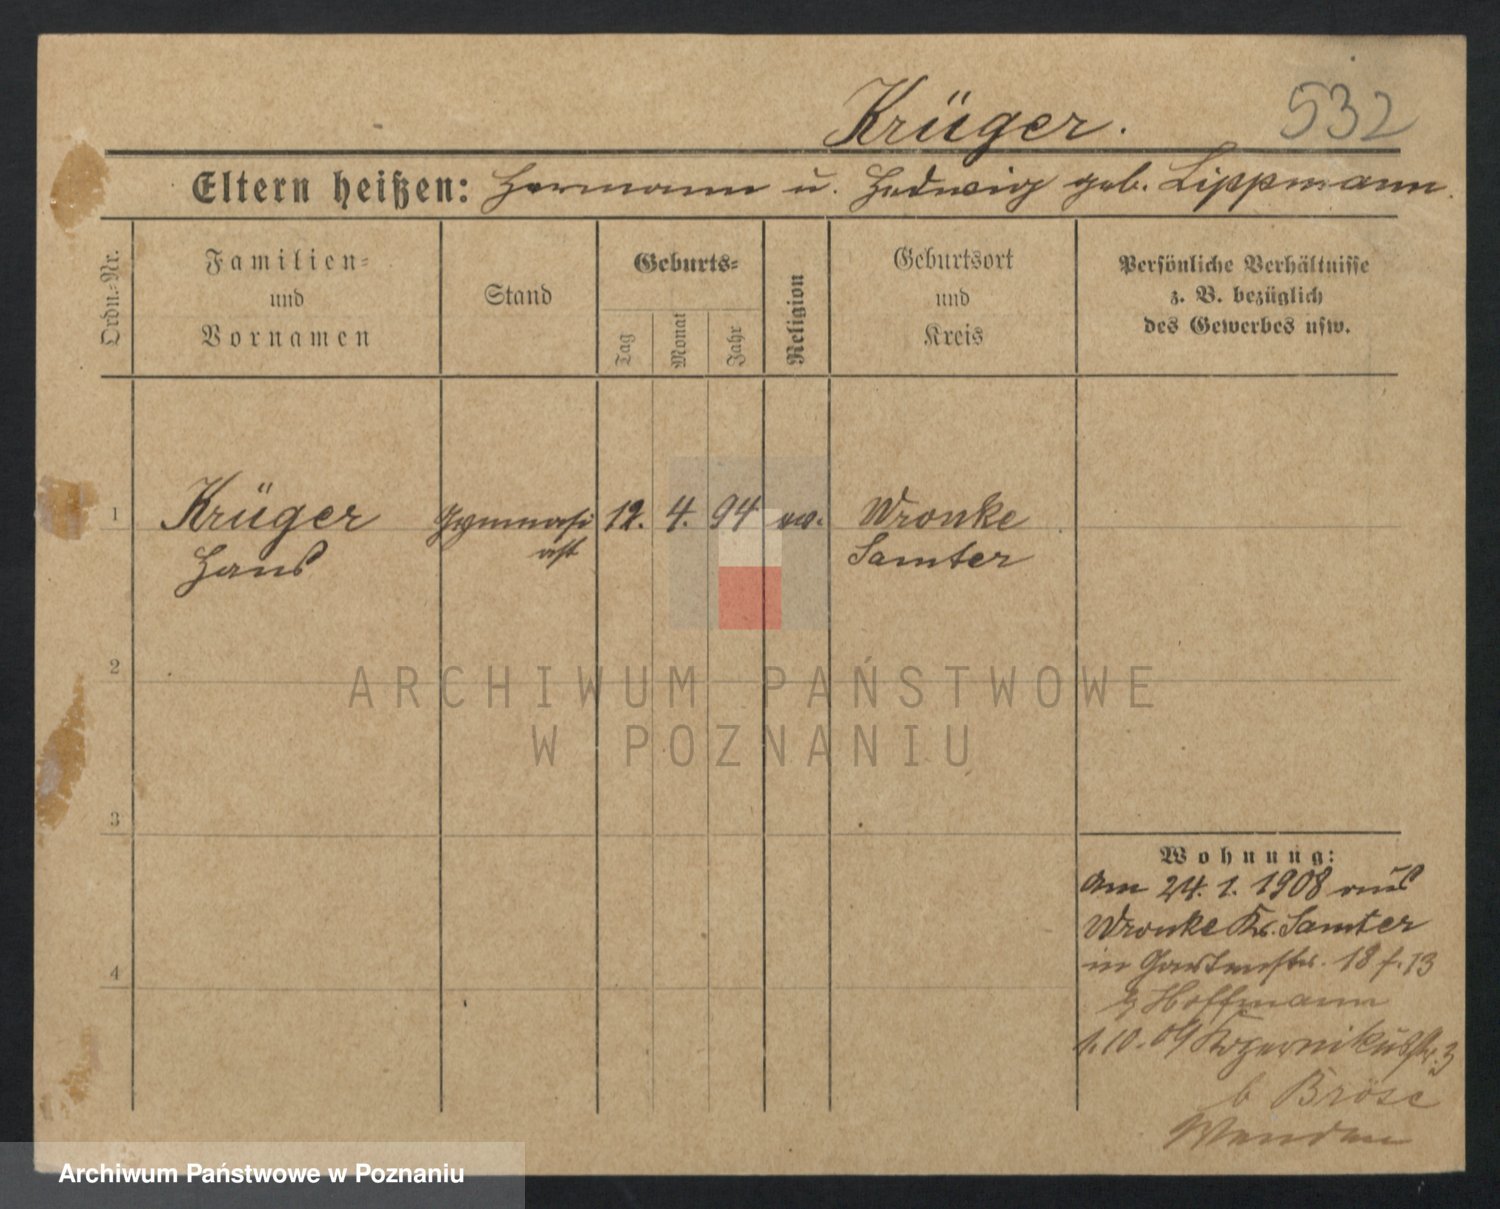 Krüger.
532
Eltern heißen: Hermann u. Hedwig geb. Lippmann.
Ordn.-Nr.
Familien-
und
Vornamen
Stand
Geburts-
Tag
Monat
Jahr
Religion
Geburtsort
und
Kreis
Persönliche Verhältnisse
z. B. bezüglich
des Gewerbes usw.
1 Krüger Gymnasi 12. 4. 94 ev. Wronke
Hans ast Samter
2
3
4
Wohnung:
Am 24. 1. 1908 aus
Wronke Kr. Samter
in Gartenstr. 18 f. 13
b Hoffmann
1.10.09 Kopernikusstr. 3
b Bröse
ARCHIWUM PAŃSTWOWE
W POZNANIU
Archiwum Państwowe w Poznaniu